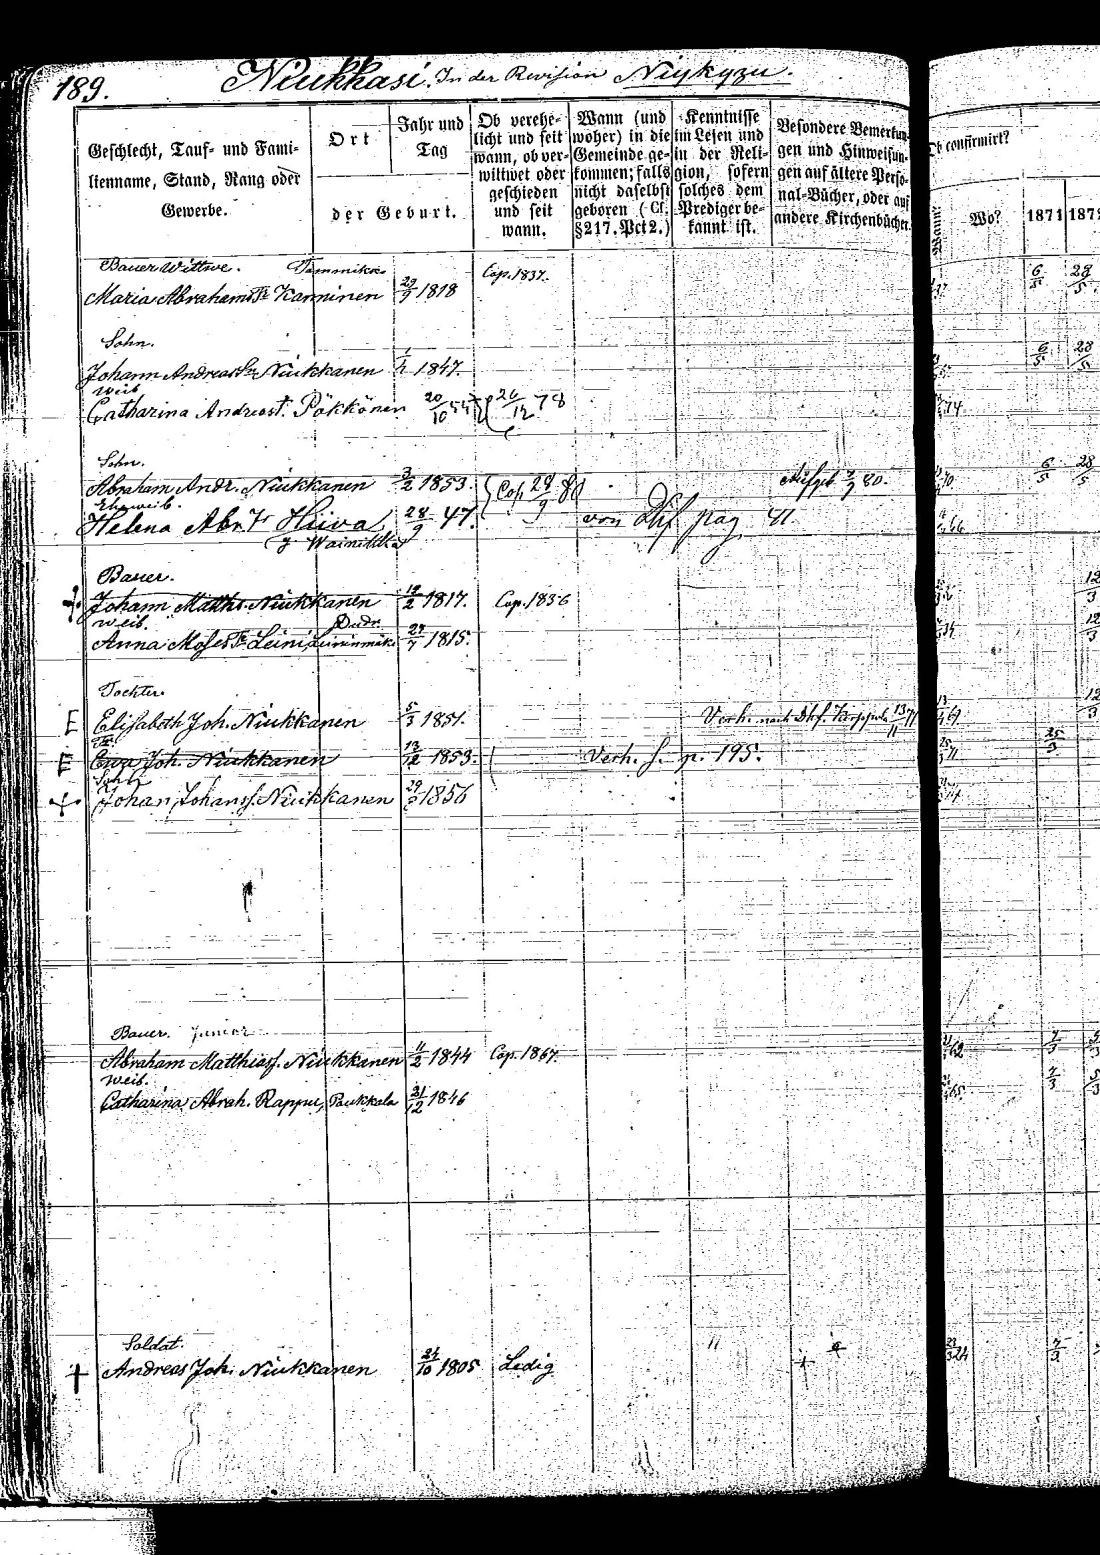 189. Niukkasi. In der Revision Niykyzu.
Geschlecht, Tauf- und Familienname, Stand, Rang oder Gewerbe.
Ort
Jahr und Tag
der Geburt.
Ob verehelicht und seit wann, ob verwittwet oder geschieden und seit wann.
Wann (und woher) in die Gemeinde gekommen; falls nicht daselbst geboren (Cf. §217. Pct 2.)
Kenntnisse im Lesen und in der Religion, sofern solches dem Prediger bekannt ist.
Besondere Bemerkungen und Hinweisungen auf ältere Personal-Bücher, oder auf andere Kirchenbücher.
Ob confirmirt?
Wann?
Wo?
1871
1872
Bauer Wittwe. Cop. 1837.
Maria Abrahams Kanninen 1818 6/5 28/5
Sohn.
Johann Andreas Niukkanen 1847. 6/5 28/5
weib
Catharina Andreast. Pökkönen 20/10 54 26/12 78 74
Sohn.
Abraham Andr. Niukkanen 3/2 1853 Cop 28/9 80 80. 6/5 28/5
Eheweib.
Helena Abr. Hiiva 28/9 47. von Dhf pag 41
Bauer.
Johann Matths. Niukkanen 12/2 1817. Cop. 1836 12/3
weib.
Anna Moses Leini 1815. 12/3
Tochter.
E Elisabeth Joh. Niukkanen 5/3 1851. Verh. nach Dhf. 13/11 71 12/3
E Ewa Joh. Niukkanen 13/12 1853. Verh. s. p. 195. 25/3
Sohn
Johan Johans. Niukkanen 1856
Bauer. Junior
Abraham Matthias. Niukkanen 11/2 1844 Cop. 1867. 7/3
weib.
Catharina Abrah. Rappu, Paukkala 31/12 1846 7/3 5/3
Soldat.
† Andreas Joh. Niukkanen 24/10 1805 Ledig 7/3